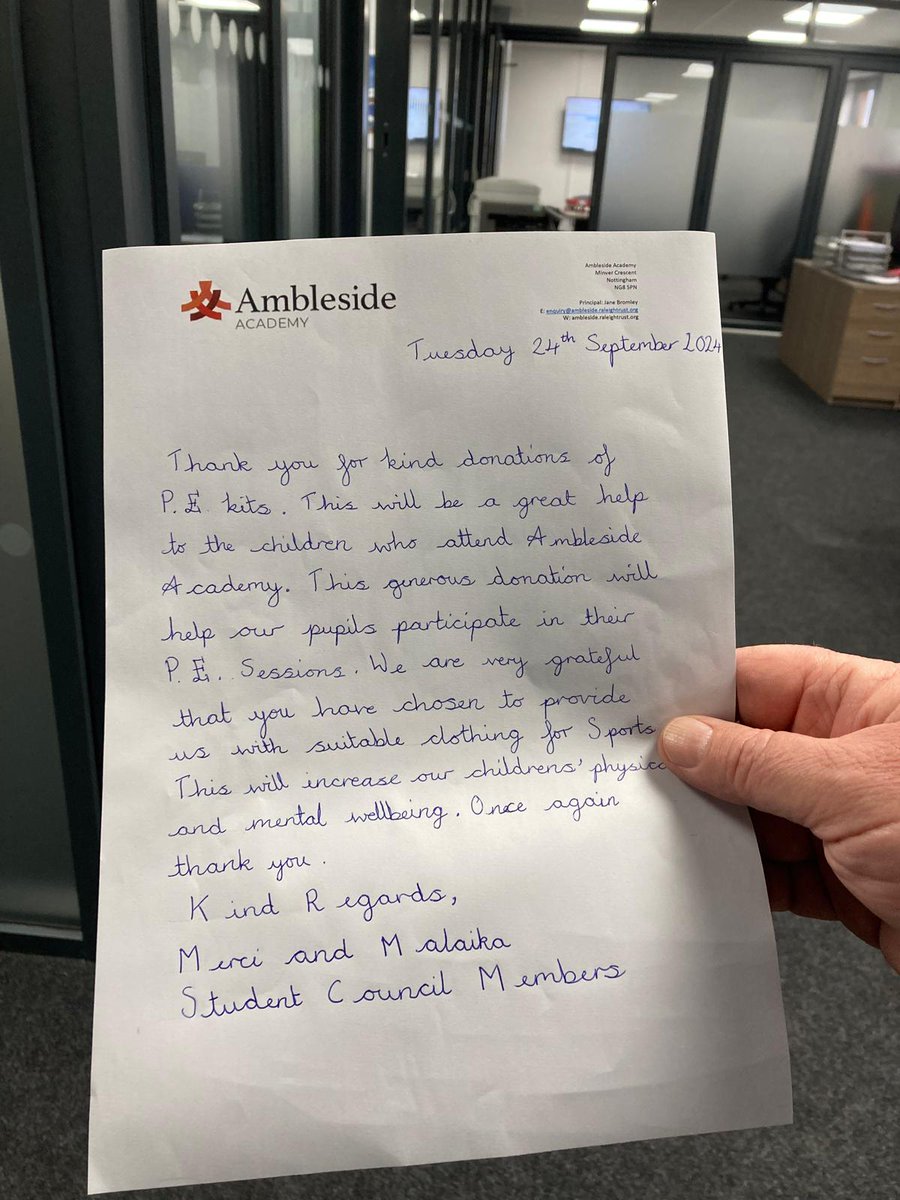 Ambleside
ACADEMY
Ambleside Academy
Minver Crescent
Nottingham
NG8 5PN
Principal: Jane Bromley
E: enquiry@ambleside.raleightrust.org
W: ambleside.raleightrust.org
Tuesday 24th September 2024
Thank you for kind donations of
P.E. kits. This will be a great help
to the children who attend Ambleside
Academy. This generous donation will
help our pupils participate in their
P.E. Sessions. We are very grateful
that you have chosen to provide
us with suitable clothing for Sports
This will increase our childrens' physica
and mental wellbeing. Once again
thank you.
Kind Regards,
Merci and Malaika
Student Council Members